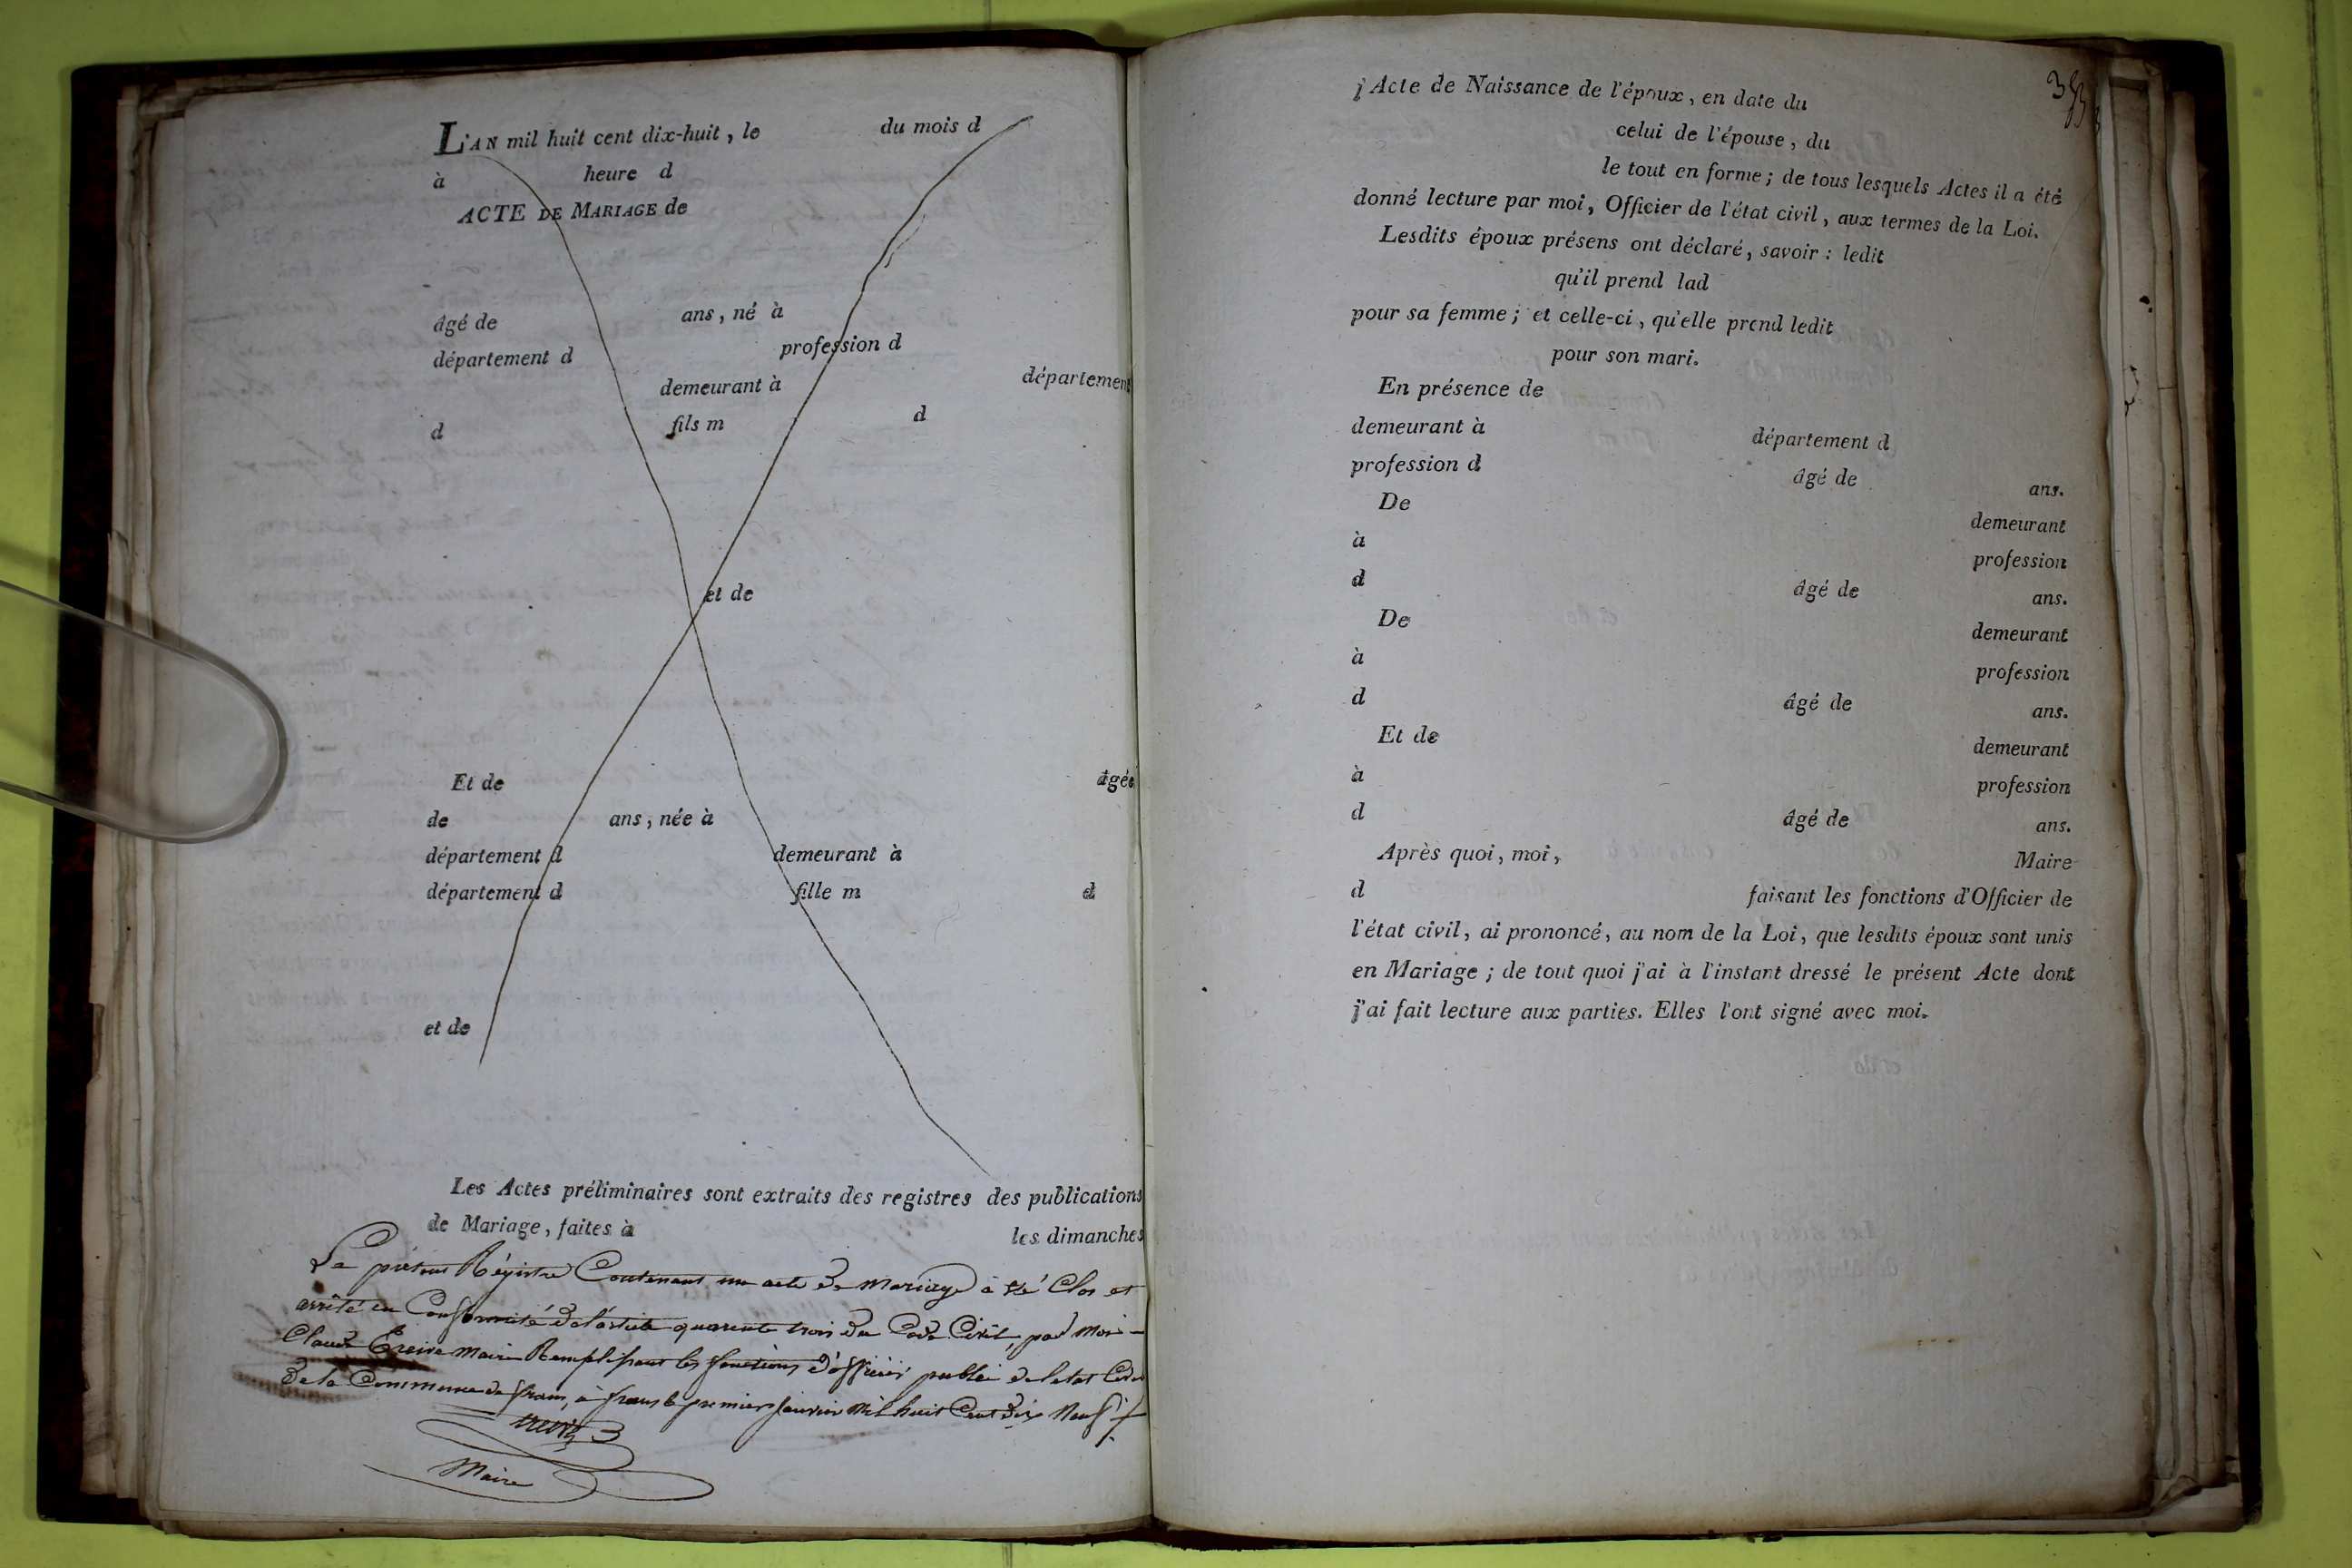 L'AN mil huit cent dix-huit, le du mois d
à heure d
ACTE DE MARIAGE de
âgé de ans, né à
département d profession d
demeurant à département
d fils m d
et de
Et de âgée
de ans, née à
département d demeurant à
département d fille m d
et de
Les Actes préliminaires sont extraits des registres des publications
de Mariage, faites à les dimanches
Le présent Régistre Contenant un acte de mariage à été Clos et
arrêté en Conformité de l'article quarante trois du Code Civil, par Moi
Claude maire Remplissant les fonctions d'officier public de l'etat Civil
de la Commune de frans, à frans le premier janvier Mil huit Cent dix Neuf
Maire
l'Acte de Naissance de l'époux, en date du
celui de l'épouse, du
le tout en forme; de tous lesquels Actes il a été
donné lecture par moi, Officier de l'état civil, aux termes de la Loi.
Lesdits époux présens ont déclaré, savoir : ledit
qu'il prend lad
pour sa femme; et celle-ci, qu'elle prend ledit
pour son mari.
En présence de
demeurant à département d
profession d âgé de ans.
De demeurant
à profession
d âgé de ans.
De demeurant
à profession
d âgé de ans.
Et de demeurant
à profession
d âgé de ans.
Après quoi, moi, Maire
d faisant les fonctions d'Officier de
l'état civil, ai prononcé, au nom de la Loi, que lesdits époux sont unis
en Mariage; de tout quoi j'ai à l'instant dressé le présent Acte dont
j'ai fait lecture aux parties. Elles l'ont signé avec moi.